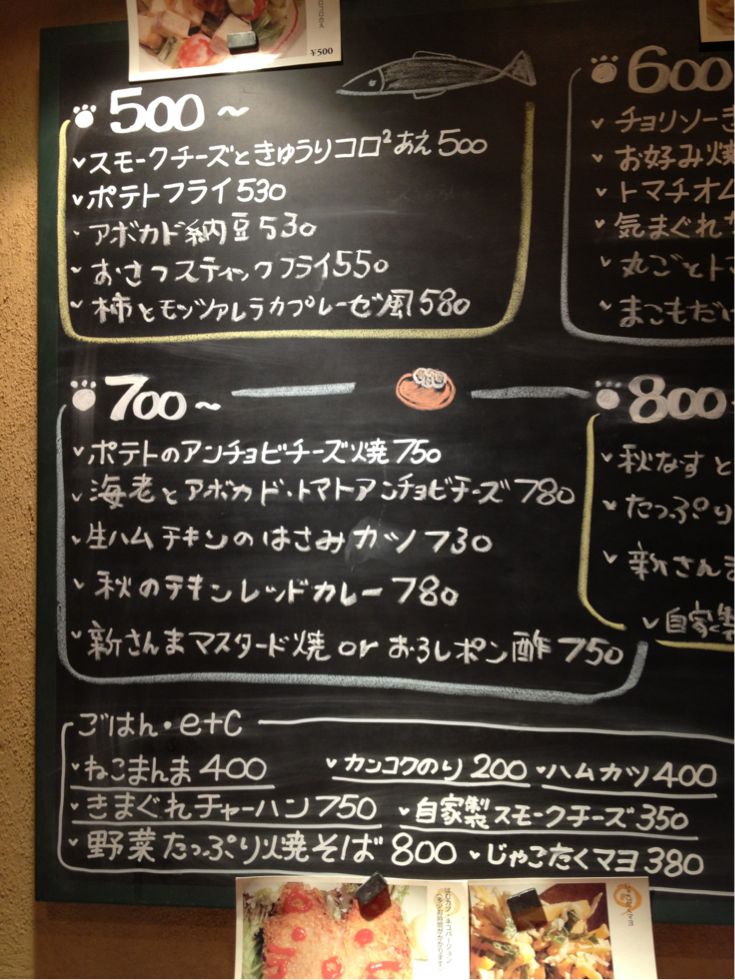 ¥500
500～
スモークチーズときゅうりコロ²あえ500
ポテトフライ530
アボカド納豆530
おさつスティックフライ550
柿とモッツァレラカプレーゼ風580
600
チョリソーき
お好み焼
トマチオム
気まぐれサ
丸ごとトマ
まこもだけ
700～
ポテトのアンチョビチーズ焼750
海老とアボカド・トマトアンチョビチーズ780
生ハムチキンのはさみカツ730
秋のチキンレッドカレー780
新さんまマスタード焼 or おろしポン酢750
800
秋なすと
たっぷり
新さんま
自家製
ごはん・etc
ねこまんま400 カンコクのり200 ハムカツ400
きまぐれチャーハン750 自家製スモークチーズ350
野菜たっぷり焼そば800 じゃこたくマヨ380